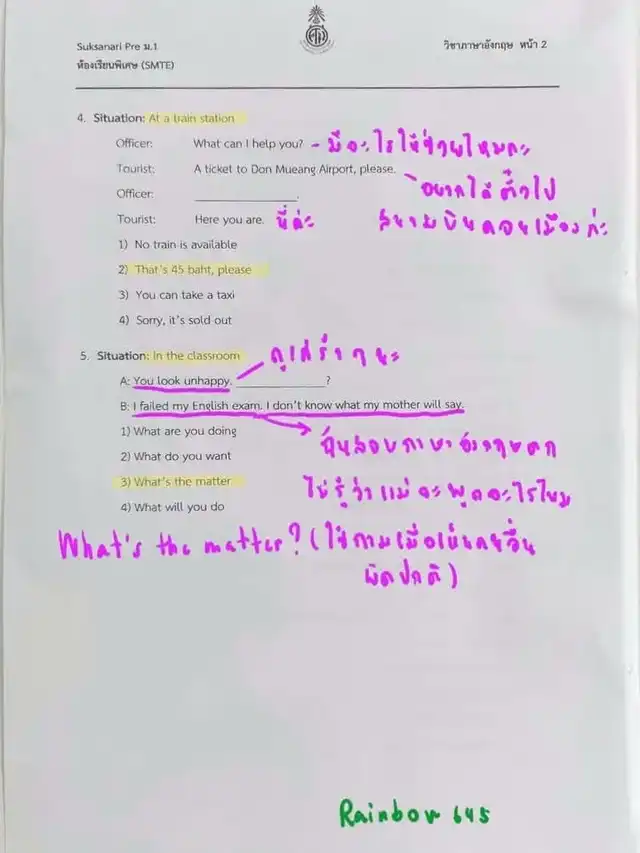 Suksanari Pre ม.1
วิชาภาษาอังกฤษ หน้า 2
ห้องเรียนพิเศษ (SMTE)
4. Situation: At a train station
Officer: What can I help you? - มีอะไรให้ช่วยไหมคะ
Tourist: A ticket to Don Mueang Airport, please.
อยากได้ตั๋วไป
Officer: ____________.
Tourist: Here you are. นี่ค่ะ
สนามบินดอนเมืองค่ะ
1) No train is available
2) That's 45 baht, please
3) You can take a taxi
4) Sorry, it's sold out
5. Situation: In the classroom
ดูเศร้าๆนะ
A: You look unhappy. ____________?
B: I failed my English exam. I don't know what my mother will say.
1) What are you doing
ฉันสอบภาษาอังกฤษตก
2) What do you want
3) What's the matter
ไม่รู้ว่าแม่จะพูดอะไรไหม
4) What will you do
What's the matter? (ใช้ถามเมื่อเห็นคนอื่น
ผิดปกติ)
Rainbow 645